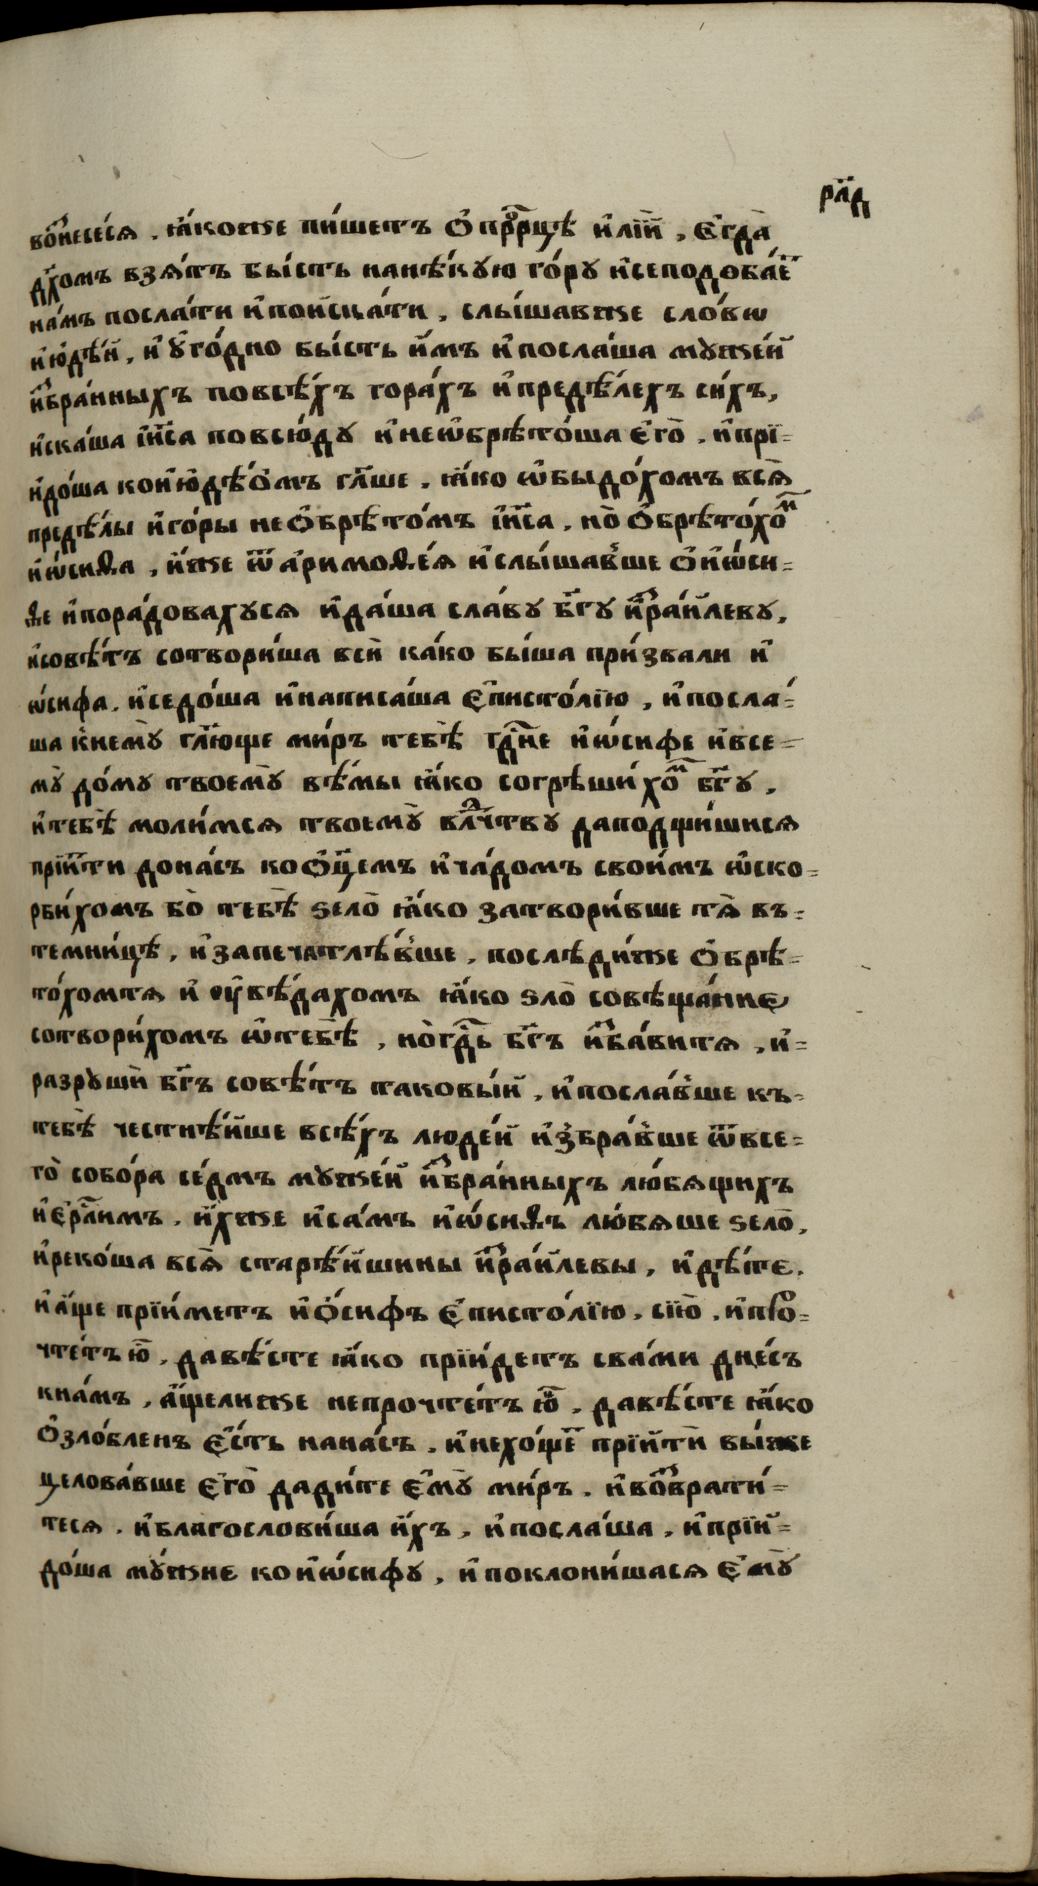 рл҃д
во҃знесе́сѧ . ꙗ҆́коже пи́шетъ ѻ҆ прⷪ҇рцѣ и҆лїи́ , є҆гда̀
дх҃омъ взѧ́тъ бы́сть нанѣ́кую го́ру и҆сеподоба́еⷮ
на́мъ посла́ти и҆пои҆ска́ти , слы́шавже сло́вѡ
и҆ю҆дѣ́й , и҆ у҆го́дно бы́сть и҆̀мъ и҆посла́ша мꙋже́й
и҆збра́нныхъ повсѣ́хъ гора́хъ и҆предѣ́лехъ си́хъ ,
и҆ска́ша і҆и҃са повсю́ду и҆неѡ҆брѣто́ша є҆го̀ . и҆прї=
и҆до́ша кои҆ю҆дѣ́ѡмъ гл҃ше . ꙗ҆́ко ѡ҆быдо́хомъ всѧ̀
предѣ́лы и҆го́ры неѻ҆брѣто́мъ і҆и҃са , но̀ ѻ҆брѣто́хоⷨ
и҆ѡ́сиѳа , и҆́же ѿ а҆римоѳе́ѧ и҆слы́шавше ѻ҆ и҆ѡ́си=
ѳе и҆пора́довахуся и҆да́ша сла́ву бг҃у і҆зра́илеву ,
и҆совѣ́тъ сотвори́ша всѝ ка́ко бы́ша при́звали и҆
ѡ́сифа . и҆седо́ша и҆написа́ша є҆писто́лїю , и҆посла́=
ша к̾нему̀ гл҃юще ми́ръ тебѣ̀ гдⷭ҇не и҆ѡ́сифе и҆все=
му̀ до́му твоему̀ вѣ́мы ꙗ҆́ко согрѣши́хоⷨ бг҃у ,
и҆тебѣ̀ моли́мся твоему̀ влⷣчтву даподщи́шися
прїитѝ дона́съ коѻ҆ц҃емъ и҆ча́домъ свои́мъ ѡ҆ско=
рби́хомъ бо̀ тебѣ̀ ѕело̀ ꙗ҆́ко затвори́вше тѧ̀ въ=
темни́цѣ , и҆запечатлѣ́вше , послѣди́же ѻ҆брѣ=
то́хомтѧ и҆ оу҆вѣ́дахомъ ꙗ҆́ко ѕло̀ совѣща́ние
сотвори́хомъ ѡ҆тебѣ̀ , но̀гдⷭ҇ь бг҃ъ и҆зба́витѧ , и҆=
разрꙋшѝ бг҃ъ совѣ́тъ таковы́й , и҆посла́вше къ=
тебѣ̀ честнѣ́йше всѣ́хъ люде́й и҆збра́вше ѿвсе=
го̀ собо́ра се́дмъ мꙋже́й и҆збра́нныхъ лю́бящихъ
и҆єрⷭ҇лимъ . и҆́хже и҆са́мъ и҆ѡ́сиѳъ лю́бяше ѕело̀ ,
и҆реко́ша всѧ̀ старѣ́йшины і҆зра́илевы , и҆дѣ́те .
и҆а҆́ще прїи́метъ и҆ѻ́сифъ є҆писто́лїю . сїю̀ . и҆про=
чте́тъ ю҆̀ , давѣ́сте ꙗ҆́ко прїи́детъ сва́ми дне́съ
кна́мъ , а҆́щелиже непрочте́тъ ю҆̀ , давѣ́сте ꙗ҆́ко
ѻ҆зло́бленъ є҆́сть нана́съ . и҆нехо́щеⷮ прїитѝ вы́же
целова́вше є҆го̀ дади́те є҆му̀ ми́ръ . и҆возврати́=
тесѧ . и҆благослови́ша и҆́хъ , и҆посла́ша , и҆прїи=
до́ша мꙋ́жие кои҆ѡ́сифу , и҆поклони́шася є҆му̀